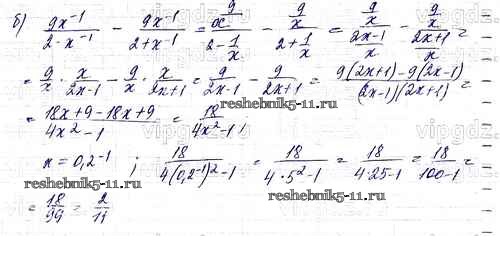 б) 9x⁻¹/(2-x⁻¹) - 9x⁻¹/(2+x⁻¹) = (9/x)/(2-1/x) - (9/x)/(2+1/x) = (9/x)/((2x-1)/x) - (9/x)/((2x+1)/x) =
= 9/x · x/(2x-1) - 9/x · x/(2x+1) = 9/(2x-1) - 9/(2x+1) = (9(2x+1)-9(2x-1))/((2x-1)(2x+1)) =
= (18x+9-18x+9)/(4x²-1) = 18/(4x²-1)
x = 0,2⁻¹ ; 18/(4(0,2⁻¹)²-1) = 18/(4·5²-1) = 18/(4·25-1) = 18/(100-1) =
= 18/99 = 2/11
reshebnik5-11.ru
reshebnik5-11.ru
vipgdz.ru
vipgdz.ru